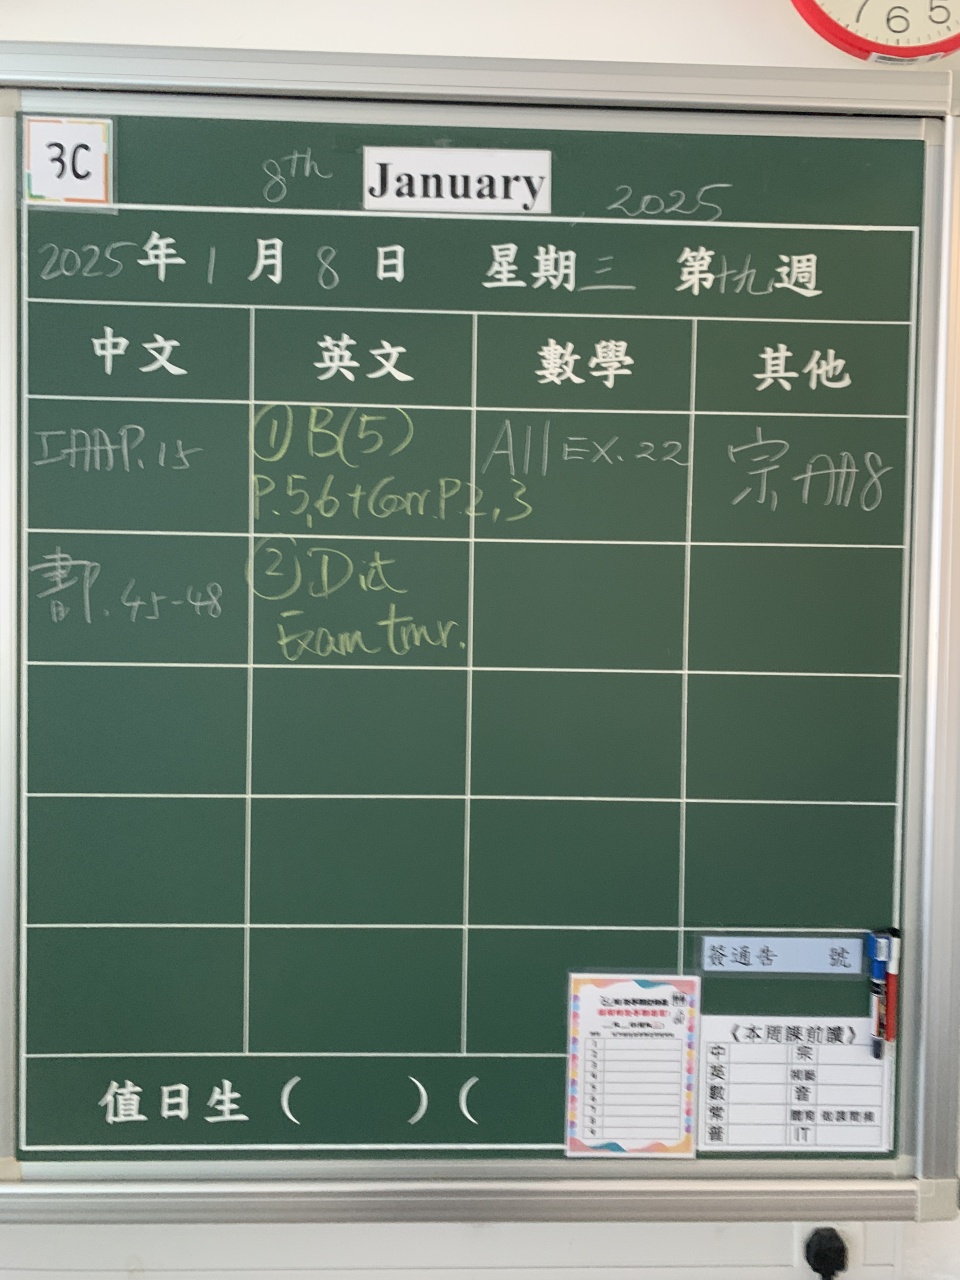 7 6 5
3C
8th January, 2025
2025年1月8日 星期三 第十九週
中文 英文 數學 其他
P.15
①B(5)
P.5,6+Corr.P.2,3
All EX.22
宗
書P.45-48
②Dict
Exam tmr.
簽通告 號
《本周課前讀》
中 宗
英 視藝
數 音
常 體育
普 IT
值日生( )(